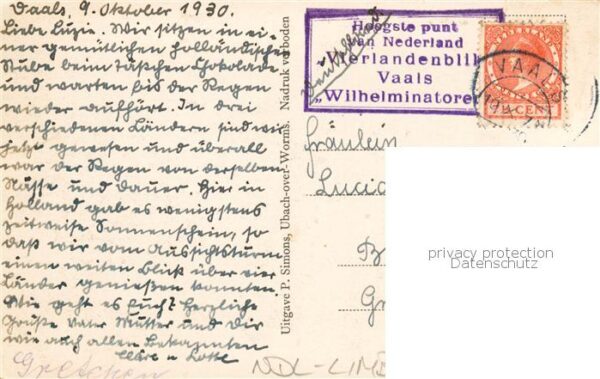 Vaals, 9. Oktober 1930.
Liebe Luzie. Wir sitzen in ei-
ner gemütlichen holländischen
Stube beim Täßchen Schokolade
und warten bis der Regen
wieder aufhört. In drei
verschiedenen Ländern sind wir
jetzt gewesen und überall
war der Regen von derselben
Nässe und Dauer. Hier in
Holland gab es wenigstens
zeitweise Sonnenschein, so
daß wir vom Aussichtsturm
einen weiten Blick über vier
Länder genießen konnten.
Wie geht es Euch? Herzliche
Grüße Vater Mutter und Dir
wie auch allen Bekannten
Cläre u Lotte
Gretchen
Uitgave P. Simons, Ubach-over-Worms. Nadruk verboden
Hoogste punt
van Nederland
Vierlandenblik
Vaals
„Wilhelminatoren
Deutschland
VAALS
CENT
Fräulein
Lucia
B
Gr
privacy protection
Datenschutz
NDL-LIMB